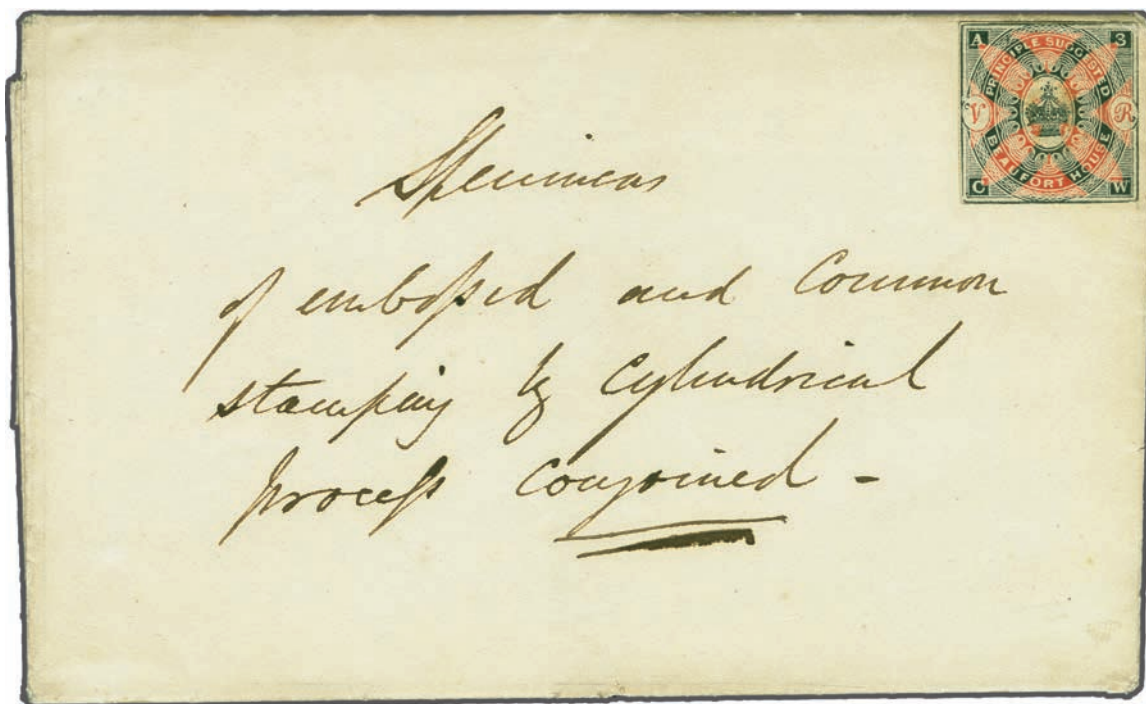 A 3
PRINCIPLE SUGGESTED
V R
BEAUFORT HOUSE
C W
Specimens
of embossed and Common
stamping by Cylindrical
process Conjoined -